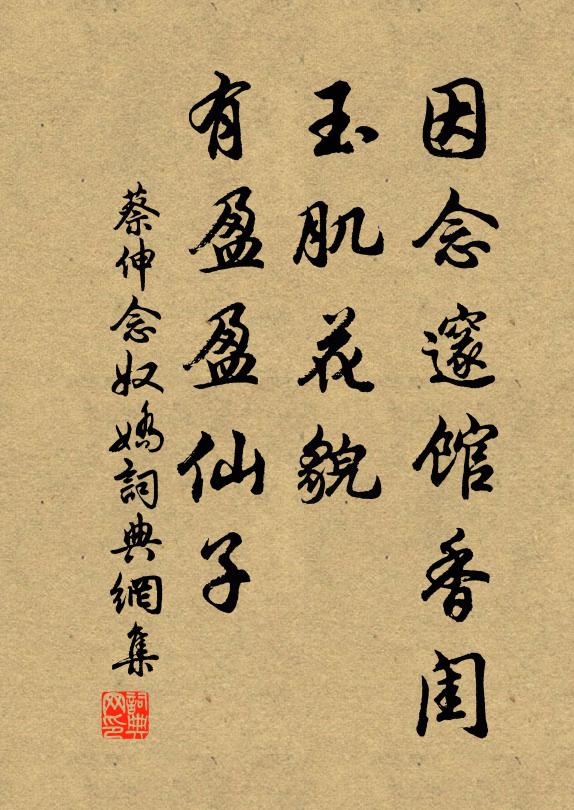 因念邃馆香闺
玉肌花貌
有盈盈仙子
蔡伸念奴嬌詞典網集
詞典网印